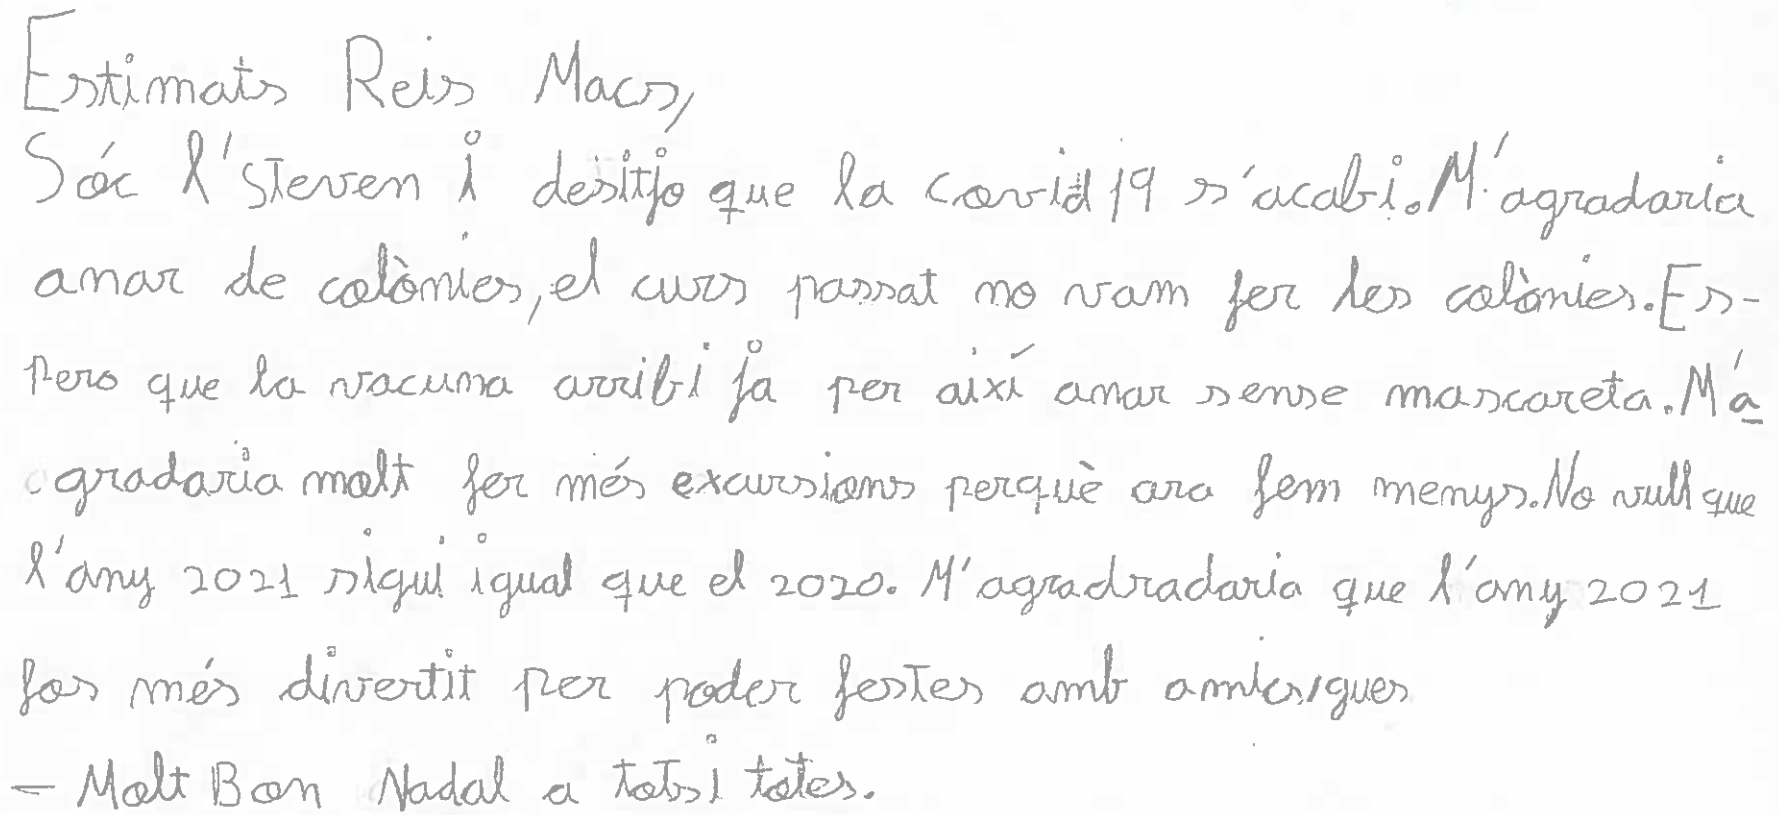 Estimats Reis Macs,
Sóc l'Steven i desitjo que la covid 19 s'acabi. M'agradaria
anar de colònies, el curs passat no vam fer les colònies. Es-
pero que la vacuna arribi ja per així anar sense mascareta. M'a
gradaria molt fer més excursions perquè ara fem menys. No vull que
l'any 2021 sigui igual que el 2020. M'agradradaria que l'any 2021
fos més divertit per poder festes amb amics/gues
- Molt Bon Nadal a tots i totes.